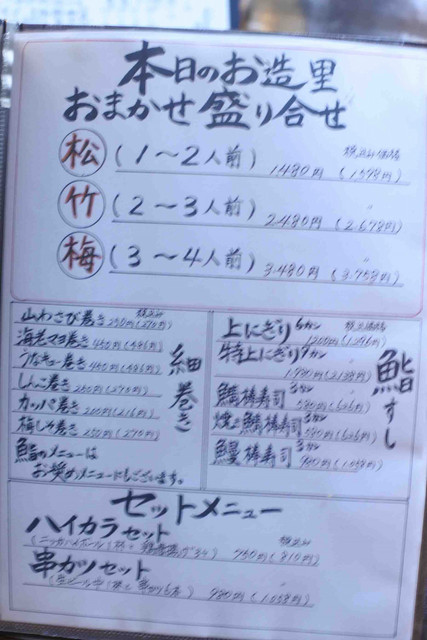 本日のお造里
おまかせ盛り合せ
松 (1〜2人前) 1480円 (1598円) 税込み価格
竹 (2〜3人前) 2480円 (2678円) 〃
梅 (3〜4人前) 3480円 (3758円) 〃
細巻き
税込み
山わさび巻き 250円(270円)
海老マヨ巻き 450円(486円)
うなキュー巻き 450円(486円)
しんこ巻き 250円(270円)
カッパ巻き 200円(216円)
梅しそ巻き 250円(270円)
鮨のメニューは
お奨めメニューにもございます。
鮨すし
上にぎり 6カン 税込み価格
特上にぎり 7カン
1980円(2138円)
鯖棒寿司 3カン
580円(626円)
焼き鯖棒寿司 3カン
580円(626円)
鰻棒寿司 3カン
980円(1058円)
セットメニュー
ハイカラセット 税込み
750円(810円)
串カツセット 〃
980円(1058円)